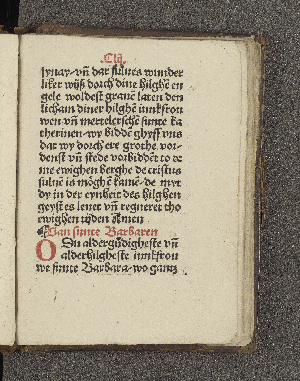 Clij.
synay· vñ dar sulues wunder
liker wijß dorch dine hilghē en
gele woldest grauē laten den
licham diner hilghē iunkfron
wen vñ mertelerschē sunte ka
therinen· wy biddē ghyff vns
dat wy dorch ere grothe vor-
denst vñ stede vorbiddēt to de
me ewighen berghe de cristus
sulue is möghē kamē· de myt
dy in der eynheit des hilghen
geystes leuet vñ regneret tho
ewighen tijden Amen
Van sunte Barbaren
O Du aldergudigheste vñ
alderhilgheste iunkfrou
we sunte Barbara· wo gantz